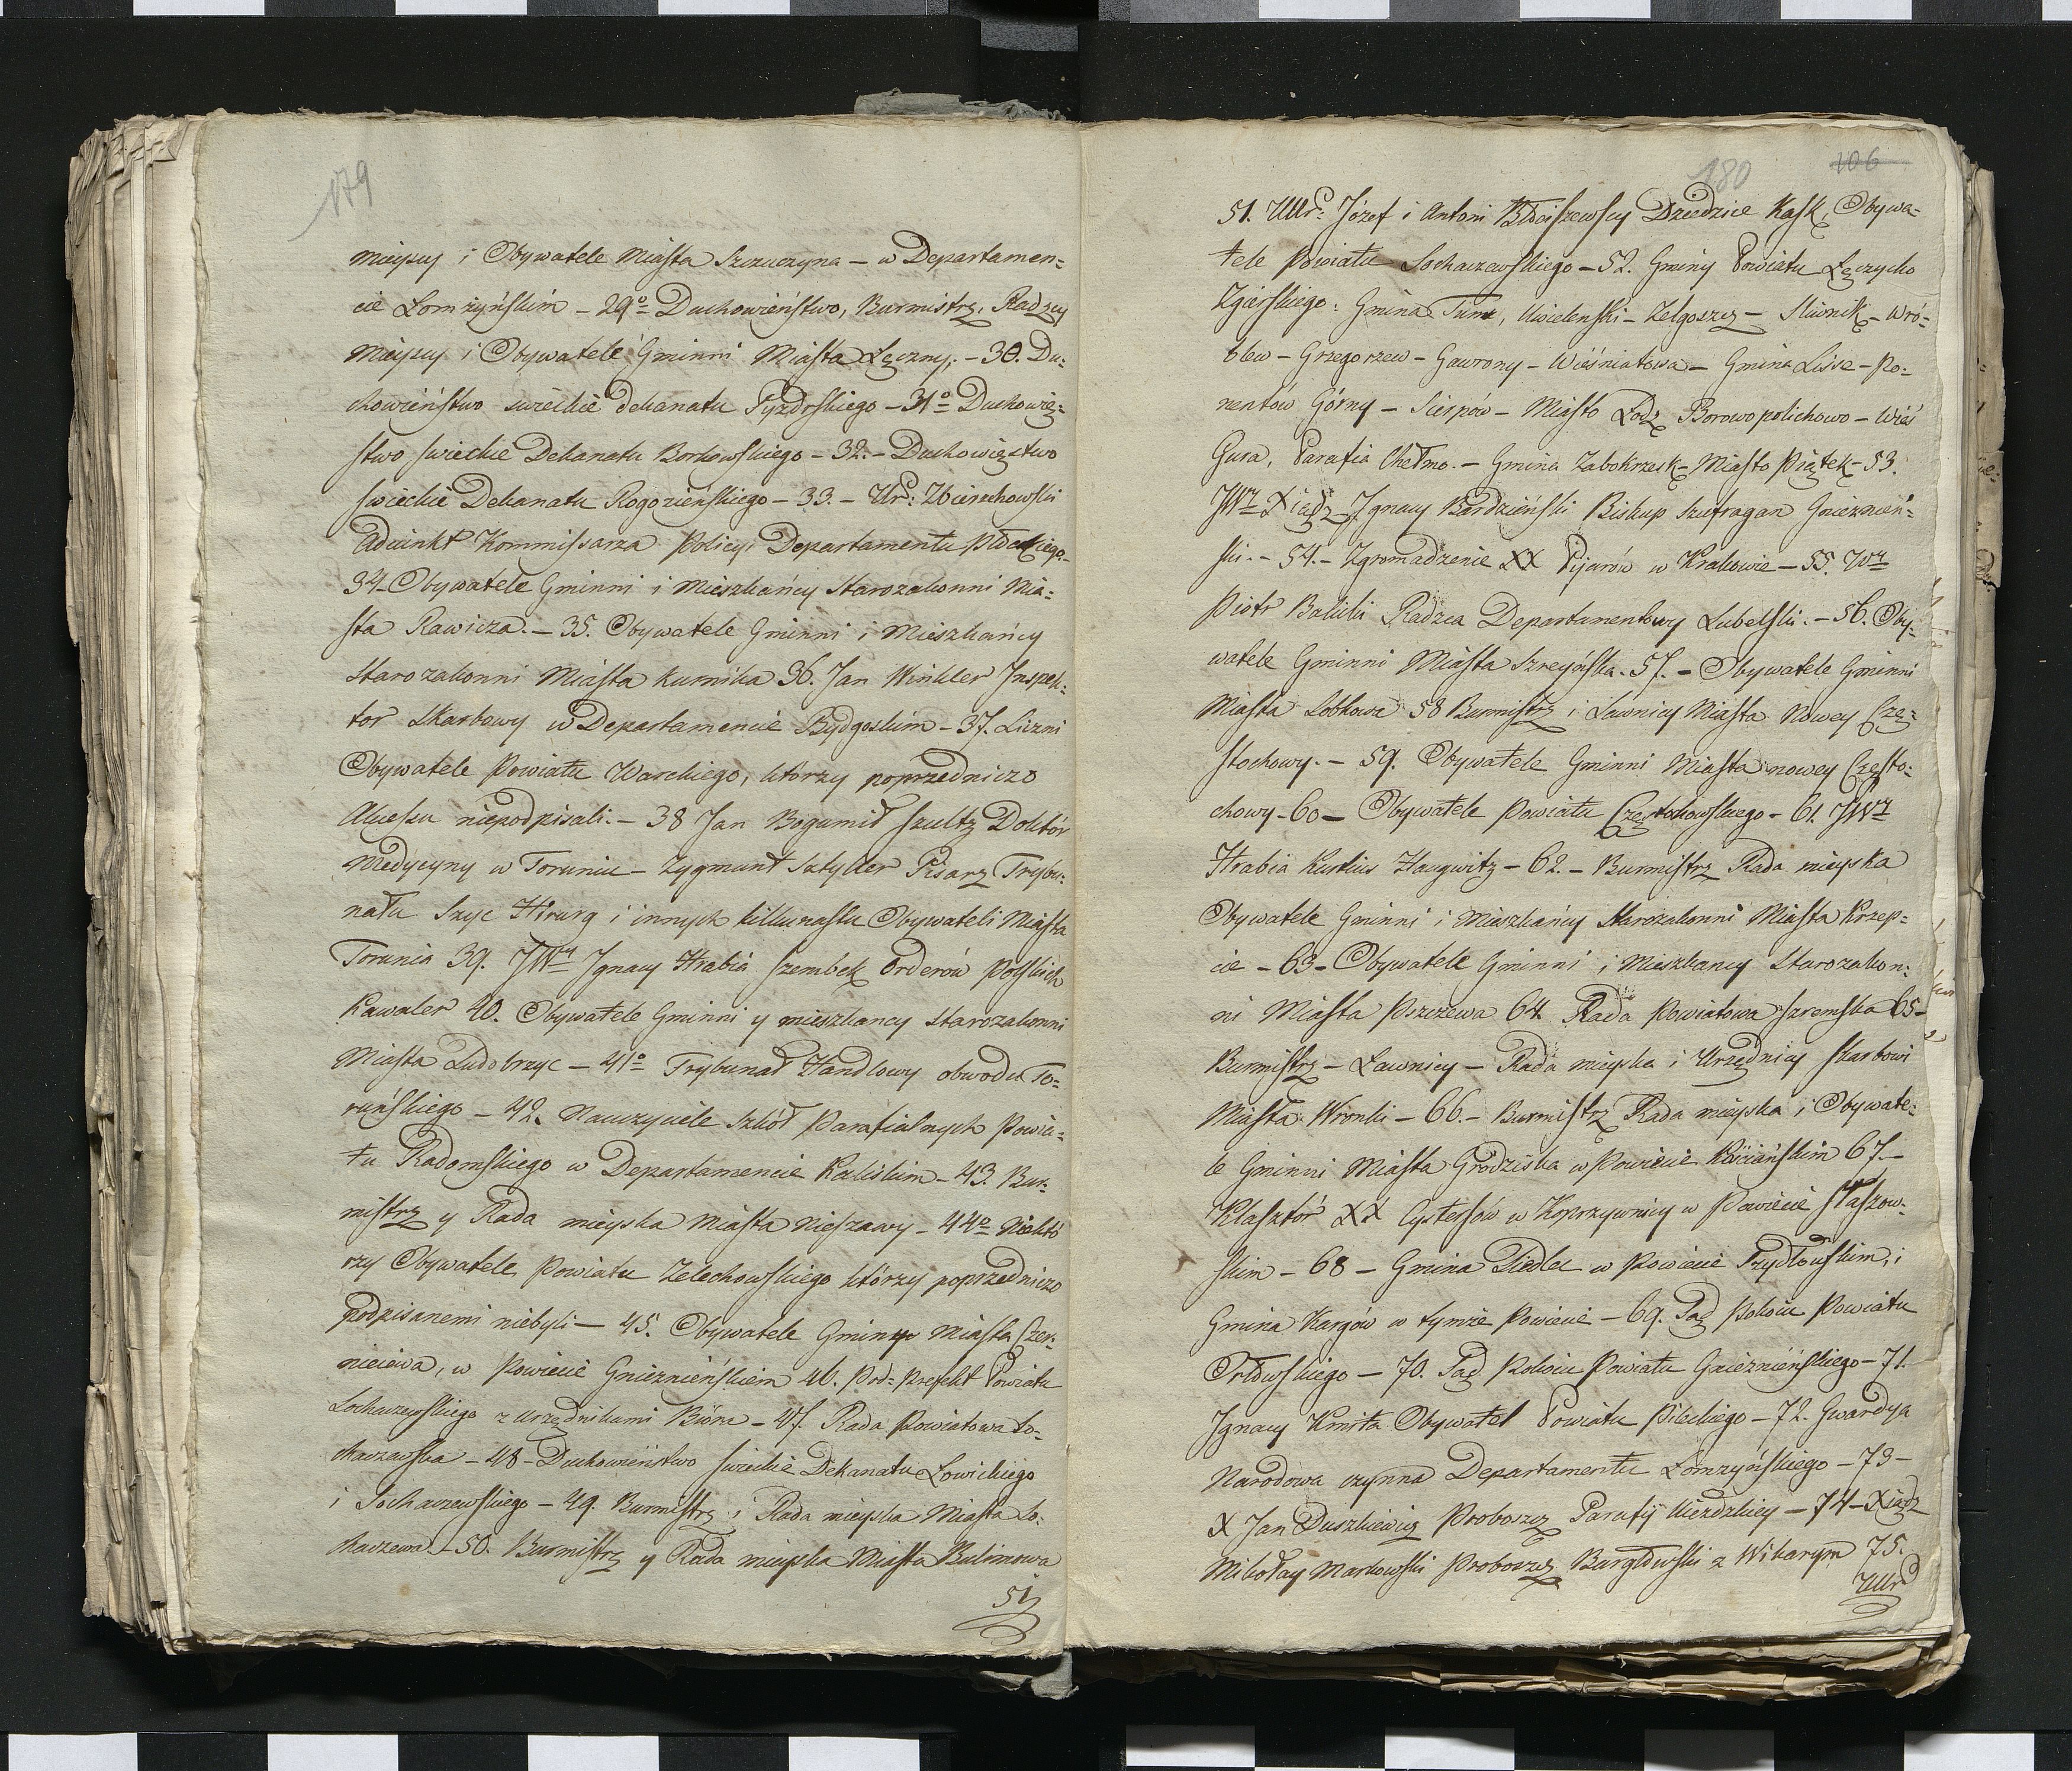 179
mieyscy i Obywatele Miasta Szczuczyna – w Departamen=
cie Łomżyńskim – 29o Duchowieństwo, Burmistrz, Radzcy
Mieyscy i Obywatele Gminni Miasta Łęczny; – 30. Du=
chowieństwo swieckie dekanatu Pyzdrskiego – 31o Duchowień=
stwo swieckie Dekanatu Borkowskiego – 32. – Duchowięstwo
swieckie Dekanatu Rogozieńskiego – 33. – Ur: Zbierzchowski
Adiunkt Kommissarza Policyi Departamentu Płockiego.
34– Obywatele Gminni i Mieszkańcy Starozakonni Mia=
sta Rawicza. – 35. Obywatele Gminni i Mieszkańcy
Starozakonni Miasta Kurnika 36. Jan Winkler Inspek=
tor Skarbowy w Departamencie Bydgoskim – 37. Liczni
Obywatele Powiatu Warckiego, ktorzy poprzedniczo
Akcessu niepodpisali. – 38 Jan Bogumił Szultz Doktór
Medycyny w Toruniu – Zygmunt Pisarz Trybu=
nału Szyc Hirurg i innych kilkunastu Obywateli Miasta
Torunia 39. JWny Ignacy Hrabia Szembek Orderów Polskich
Kawaler 40. Obywatele Gminni y mieszkancy Starozakonni
Miasta – 41o Trybunał Handlowy obwodu To=
ruńskiego – 42. Nauczyciele Szkół Parafialnych Powia=
tu Radomskiego w Departamencie Kaliskim – 43. Bur=
mistrz y Rada mieyska Miasta Nieszawy – 44o Niektó
rzy Obywatele Powiatu Zelechowskiego którzy poprzedniczo
podpisanemi niebyli – 45. Obywatele Gminy Miasta Czer=
nieiewa, w Powiecie Gnieznieńskiem 46. Pod= Prefekt Powiatu
Sochaczewskiego z Urzędnikami Bióra – 47. Rada Powiatowa So=
chaczewska – 48 – Duchowieństwo swieckie Dekanatu Łowickiego
i Sochaczewskiego – 49. Burmistrz i Rada mieyska Miasta So=
chaczewa. – 50. Burmistrz y Rada mieyska Miasta Bolimowa
51
180 106
51. UUr: Józef i Antoni Dziedzice Kask, Obywa=
tele Powiatu Sochaczewskiego – 52. Gminy Powiatu Łęczycko
Zgierskiego: Gmina Tum, – Zelgoszcz – Sliwnik – Wró=
blew – Grzegorzew – Gawrony – Wiesniatowa – Gmina –
nentów Górny – Sierpów – Miasto Łodz – Wieś
Gura, Parafia Chełmo. – Gmina Zabokrzesk – Miasto Piątek – 53.
JWny Xiądz Ignacy Bardzieński Biskup Szufragan Gniezneń=
ski. – 54. – Zgromadzenie XX Pijarów w Krakowie – 55. Wny
Piotr Balicki Radzca Departamentowy Lubelski. – 56. Oby=
watele Gminni Miasta Szreńska. 57. – Obywatele Gminni
Miasta Sobkowa 58 Burmistrz i Ławnicy Miasta Nowey Czę=
stochowy. – 59. Obywatele Gminni Miasta nowey Często=
chowy – 60 – Obywatele Powiatu Częstochowskiego – 61. JWny
Hrabia Haugwitz – 62. – Burmistrz Rada mieyska
Obywatele Gminni i Mieszkańcy Starozakonni Miasta Krzep=
ice – 63 – Obywatele Gminni i Mieszkancy Starozakon=
ni Miasta Pszczewa 64 Rada Powiatowa Szremska 65 –
Burmistrz – Ławnicy – Rada mieyska i Urzędnicy Skarbowi
Miasta Wronki – 66. – Burmistrz Rada mieyska i Obywate=
le Gminni Miasta Grodziska w Powiecie Kościańskim 67. –
Klasztór XX Cystersów w Koprzywnicy w Powiecie Staszow=
skim – 68 – Gmina w Powiecie Szydłowskim, i
Gmina Kargów w tymże Powiecie – 69. Sąd Pokoiu Powiatu
Orłowskiego – 70. Sąd Pokoiu Powiatu Gnieznieńskiego – 71.
Ignacy Kmita Obywatel Powiatu Pileckiego – 72. Gwardya
Narodowa czynna Departamentu Łomzyńskiego – 73 –
X Jan Duszkiewicz Proboszcz Parafij – 74 – Xiądz
Mikołay Markowski Proboszcz Bargłowski z Wikarym 75.
UUr